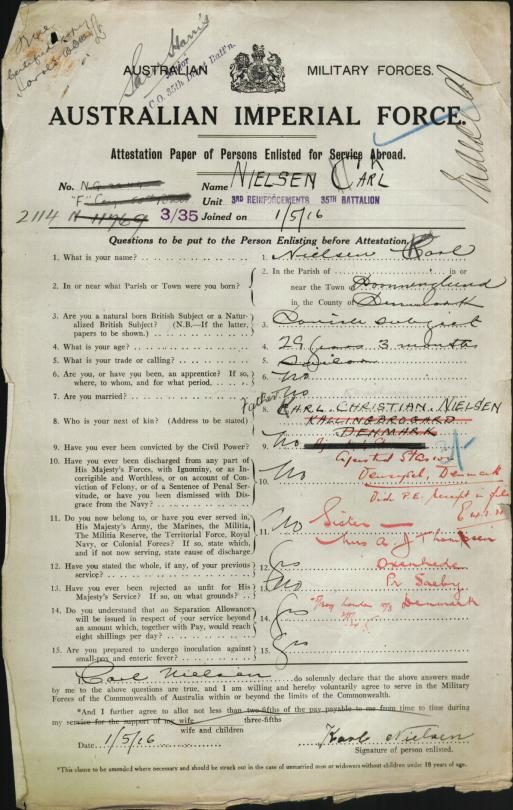 Sam Harris
Major
C.O. 35th Batt'n.
AUSTRALIAN MILITARY FORCES.
AUSTRALIAN IMPERIAL FORCE.
Attestation Paper of Persons Enlisted for Service Abroad.
No.
Name NIELSEN CARL
K
Unit 3RD REINFORCEMENTS 35TH BATTALION
2114 N 3/35 Joined on 1/5/16
Questions to be put to the Person Enlisting before Attestation.
1. What is your name?
1. Nielsen Karl
2. In or near what Parish or Town were you born?
2. In the Parish of in or
near the Town of
in the County of Denmark
3. Are you a natural born British Subject or a Natu-
ralized British Subject? (N.B.—If the latter,
papers to be shown.)
3. Danish subject
4. What is your age?
4. 29 years 3 months
5. What is your trade or calling?
5.
6. Are you, or have you been, an apprentice? If so,
where, to whom, and for what period.
6. No
7. Are you married?
7. No
8. Who is your next of kin? (Address to be stated)
Father
8. CARL. CHRISTIAN. NIELSEN
DENMARK
9. Have you ever been convicted by the Civil Power?
9. No
10. Have you ever been discharged from any part of
His Majesty's Forces, with Ignominy, or as In-
corrigible and Worthless, or on account of Con-
viction of Felony, or of a Sentence of Penal Ser-
vitude, or have you been dismissed with Dis-
grace from the Navy?
10. No
Denmark
11. Do you now belong to, or have you ever served in,
His Majesty's Army, the Marines, the Militia,
The Militia Reserve, the Territorial Force, Royal
Navy, or Colonial Forces? If so, state which,
and if not now serving, state cause of discharge.
11. No
Sister —
Mrs A. J. Thomsen
12. Have you stated the whole, if any, of your previous
service?
12. Yes
Oxenhede
13. Have you ever been rejected as unfit for His
Majesty's Service? If so, on what grounds?
13. No
Pr Saeby
14. Do you understand that no Separation Allowance
will be issued in respect of your service beyond
an amount which, together with Pay, would reach
eight shillings per day?
14. Yes
Denmark
15. Are you prepared to undergo inoculation against
small-pox and enteric fever?
15. Yes
I, Carl Nielsen do solemnly declare that the above answers made
by me to the above questions are true, and I am willing and hereby voluntarily agree to serve in the Military
Forces of the Commonwealth of Australia within or beyond the limits of the Commonwealth.
*And I further agree to allot not less than two-fifths of the pay payable to me from time to time during
three-fifths
my service for the support of my wife
wife and children
Date 1/5/16
Karl Nielsen
Signature of person enlisted.
*This clause to be amended where necessary and should be struck out in the case of unmarried men or widowers without children under 18 years of age.